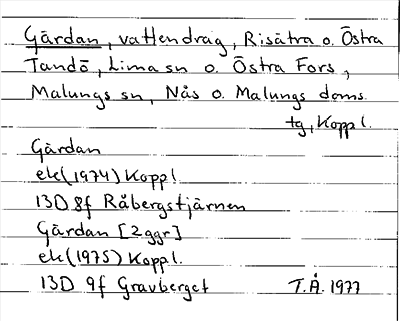 Gärdan, vattendrag, Risätra o. Östra
Tandö, Lima sn o. Östra Fors,
Malungs sn, Nås o. Malungs doms.
tg, Koppl.
Gärdan
ek(1974) Koppl.
13D 8f Råbergstjärnen
Gärdan [2ggr]
ek(1975) Koppl.
13D 9f Gravberget T.Å. 1977